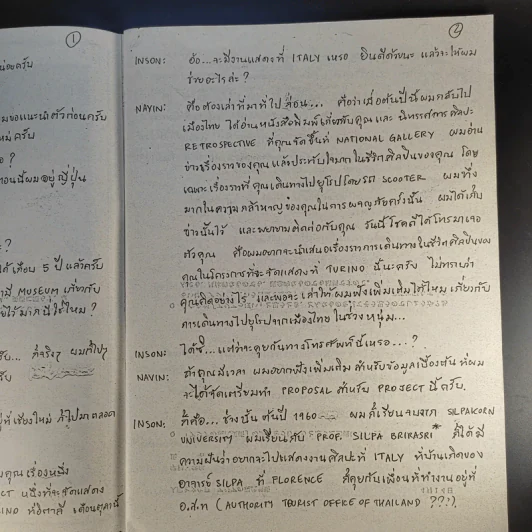 ①
น่อยครับ
มขอแนะนำตัวก่อนครับ
หม่ครับ
อ ?
ตอนนี้ผมอยู่ญี่ปุ่น
ะ ?
ได้เกือบ 5 ปี แล้วครับ
ามี MUSEUM เกี่ยวกับ
ที่จริงๆ ผมก็ไปๆ
รับ
ยู่ที่เชียงใหม่ ก็ไปมาตลอด
บคุณเรื่องหนึ่ง
CT หนึ่งที่จะจัดแสดง
INO ที่อิตาลี เดือนตุลานี้
②
INSON: อ้อ...จะมีงานแสดงที่ ITALY เหรอ ยินดีด้วยนะ แล้วจะให้ผม
ช่วยอะไรล่ะ ?
NAVIN: คือต้องเล่าที่มาที่ไปก่อน... คือว่าเมื่อต้นปีนี้ผมกลับไป
เมืองไทย ได้อ่านหนังสือพิมพ์เกี่ยวกับคุณและ นิทรรศการศิลปะ
RETROSPECTIVE ที่คุณจัดขึ้นที่ NATIONAL GALLERY ผมอ่าน
ข่าวเรื่องราวของคุณ แล้วประทับใจมากในชีวิตศิลปินของคุณ โดย
เฉพาะ เรื่องราวที่คุณเดินทางไปยุโรปโดยรถ SCOOTER ผมทึ่ง
มากในความกล้าหาญของคุณในการผจญภัยครั้งนั้น ผมได้เก็บ
ข่าวนั้นไว้ และพยายามติดต่อกับคุณ วันนี้โชคดีได้โทรมาเจอ
ตัวคุณ คือผมอยากจะนำเสนอเรื่องราวการเดินทางในชีวิตศิลปินของ
คุณในโครงการที่จะจัดแสดงที่ TURINO นี้นะครับ ไม่ทราบว่า
คุณคิดอย่างไร และพอจะเล่าให้ผมฟังเพิ่มเติมได้ไหม เกี่ยวกับ
การเดินทางไปยุโรปจากเมืองไทยในช่วงหนุ่ม...
INSON: ได้ซิ...แต่ว่าจะคุยกันทางโทรศัพท์นี้เหรอ...?
NAVIN: ถ้าคุณมีเวลา ผมอยากฟังเพิ่มเติม สำหรับข้อมูลเบื้องต้น ที่ผม
จะได้จัดเตรียมทำ PROPOSAL สำหรับ PROJECT นี้ครับ.
INSON: ก็คือ... ช่วงนั้น ต้นปี 1960 ผมก็เรียนจบจาก SILPAKORN
UNIVERSITY ผมเรียนกับ PROF. SILPA BRIRASRI* ก็ได้มี
ความฝันว่าอยากจะไปแสดงงานศิลปะที่ ITALY ที่บ้านเกิดของ
อาจารย์ SILPA ที่ FLORENCE ก็คุยกับเพื่อนที่ทำงานอยู่ที่
อ.ส.ท (AUTHORITY TOURIST OFFICE OF THAILAND ???),